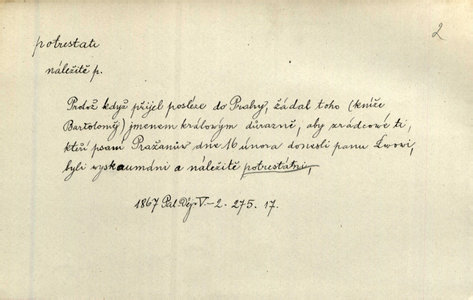 2
potrestati
náležitě p.
Protož když přijel posléze do Prahy, žádal toho (kníže
Bartoloměj) jmenem královým důrazně, aby zrádcové ti,
kteří psaní Pražanův dne 16 února donesli panu Lvovi,
byli vyskoumáni a náležitě potrestáni,
1867 Pal. Děj. V-2. 275. 17.